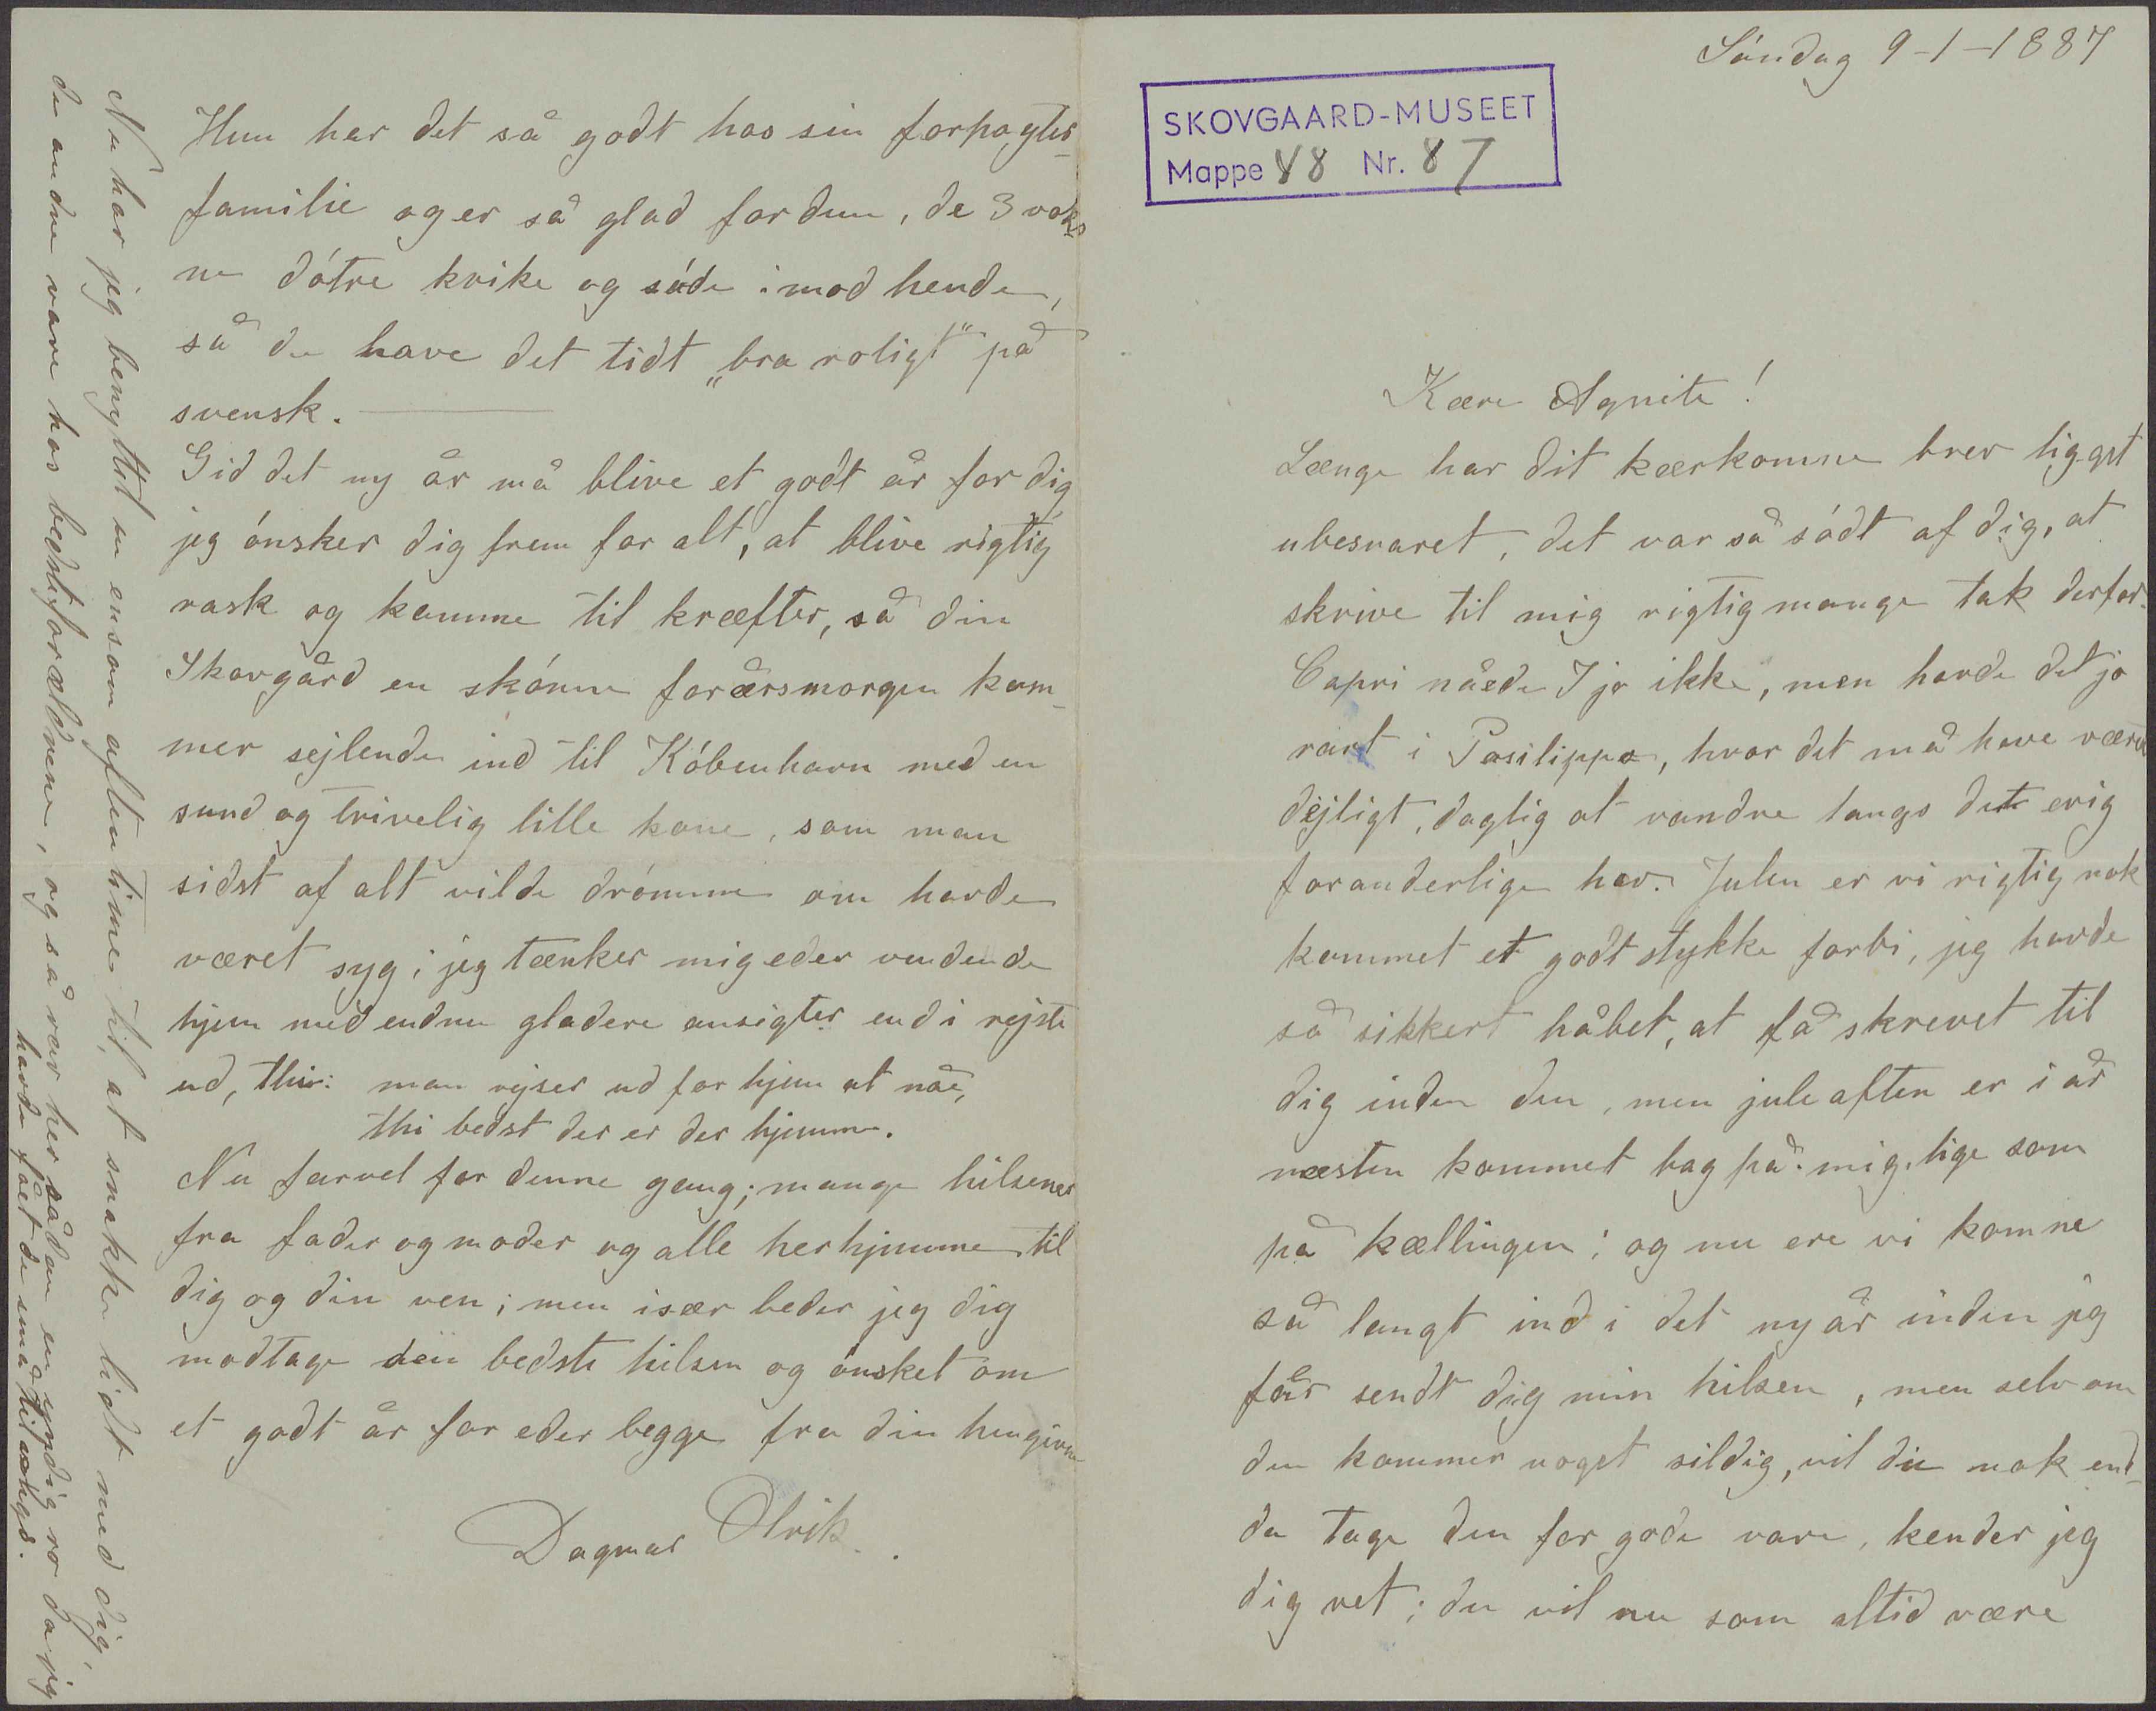 Sóndag 9-1-1887
SKOVGAARD-MUSEET
Mappe 48 Nr. 87
Kære Agnite!
Længe har dit kærkomne brev ligget
ubesvaret, det var så sódt af dig, at
skrive til mig rigtig mange tak derfor.
Capri nåede I jo ikke, men havde det jo
rart i Posilippo, hvor det må have været
dejligt, daglig at vandre langs det evig
foranderlige hav. Julen er vi rigtig nok
kommet et godt stykke forbi, jeg havde
så sikkert håbet, at få skrevet til
dig inden den, men jule aften er i år
næsten kommet bag på mig, lige som
på kællingen; og nu ere vi komne
så langt ind i det ny år inden jeg
får sendt dig min hilsen, men selv om
den kommer noget sildig, vil du nok end-
da tage den for gode vare, kender jeg
dig ret; du vil nu som altid være
Hun har det så godt hos sin forpagter-
familie og er så glad for dem, de 3 voks
ne dótre kvike og sóde imod hende,
så de have det tidt „bra roligt" på
svensk.
Gid det ny år må blive et godt år for dig
jeg ónsker dig frem for alt, at blive rigtig
rask og komme til kræfter, så din
Skovgård en skónne forårsmorgen kom-
mer sejlende ind til Kóbenhavn med en
sund og trivelig lille kone, som man
sidst af alt vilde drómme om havde
været syg; jeg tænker mig eder vendende
hjem med endnu gladere ansigter end i rejste
ud, thi: man rejser ud for hjem at nå,
thi bedst der er der hjemme.
Nu farvel for denne gang; mange hilsener
fra fader og moder og alle herhjemme til
dig og din ven; men især beder jeg dig
modtage den bedste hilsen og ónsket om
et godt år for eder begge fra din hengivne
Dagmar Olrik.
Nu har jeg benyttet en ensom aftentime til, at snakke lidt med dig,
de andre vare hos bedsteforældrene, og så var her sådan en yndig ro da jeg
havde fået de små til sengs.